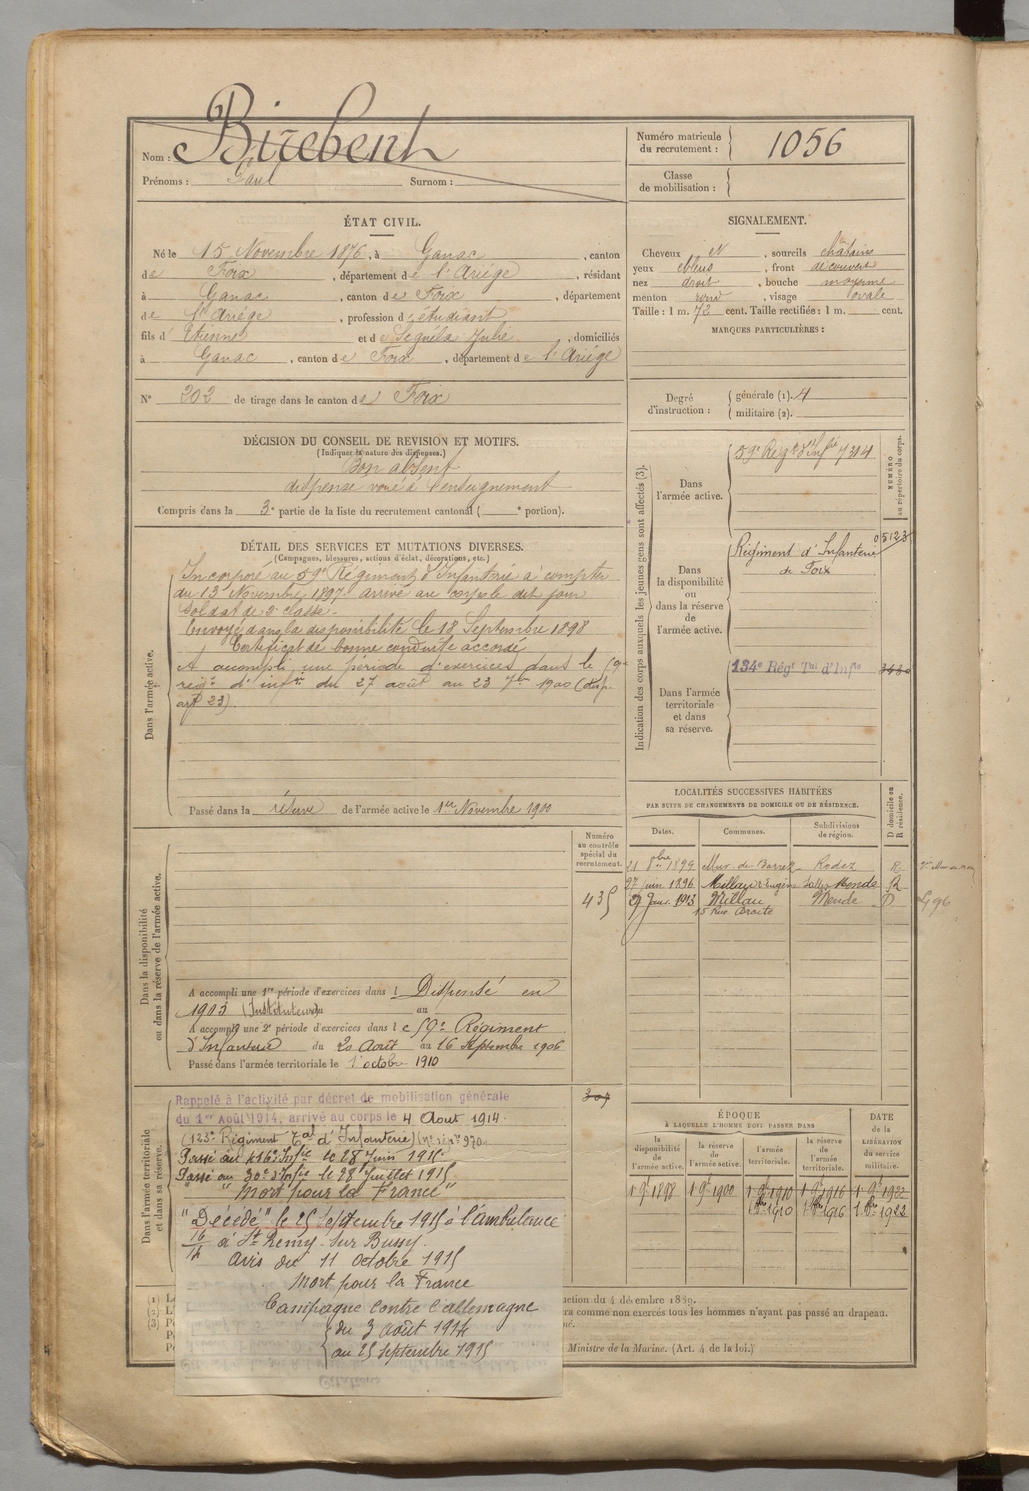 Nom : Birebent
Prénoms : Paul Surnom :
Numéro matricule du recrutement : 1056
Classe de mobilisation :
ÉTAT CIVIL.
Né le 15 Novembre 1876, à Ganac, canton
de Foix, département de l'Ariége, résidant
à Ganac, canton de Foix, département
de l'Ariége, profession d'étudiant
fils d' Etienne et de Séguéla Julie, domiciliés
à Ganac, canton de Foix, département de l'Ariége
N° 202 de tirage dans le canton de Foix
SIGNALEMENT.
Cheveux et, sourcils châtains
yeux bleus, front découvert
nez droit, bouche moyenne
menton rond, visage ovale
Taille : 1 m. 72 cent. Taille rectifiée : 1 m. cent.
MARQUES PARTICULIÈRES :
Degré d'instruction : générale (1). 4
militaire (2).
DÉCISION DU CONSEIL DE REVISION ET MOTIFS.
(Indiquer la nature des dispenses.)
Bon absent
dispensé voué à l'enseignement
Compris dans la 3e partie de la liste du recrutement cantonal ( e portion).
DÉTAIL DES SERVICES ET MUTATIONS DIVERSES.
(Campagnes, blessures, actions d'éclat, décorations, etc.)
Dans l'armée active.
Incorporé au 59e Régiment d'Infanterie à compter
du 13 Novembre 1897 arrivé au corps le dit jour
Soldat de 2e classe.
Envoyé dans la disponibilité le 18 Septembre 1898
Certificat de bonne conduite accordé
A accompli une période d'exercices dans le 59e
régt d'infrie du 27 août au 23 7bre 1900 (disp.
art 23).
Passé dans la réserve de l'armée active le 1er Novembre 1900
Indication des corps auxquels les jeunes gens sont affectés (3).
NUMÉRO au répertoire du corps.
Dans l'armée active.
59e Régt d'Infie 7314
Dans la disponibilité ou dans la réserve de l'armée active.
Régiment d'Infanterie 05123
de Foix
Dans l'armée territoriale et dans sa réserve.
134e Régt Tal d'Infie
LOCALITÉS SUCCESSIVES HABITÉES
PAR SUITE DE CHANGEMENTS DE DOMICILE OU DE RÉSIDENCE.
Dates. Communes. Subdivisions de région. D domicile ou R résidence.
21 8bre 1899 Mur-de-Barrez Rodez R
27 juin 1896 Millau Mende R
29 Janv. 1913 Millau Mende D
15 Rue Droite
496
Dans la disponibilité ou dans la réserve de l'armée active.
Numéro au contrôle spécial du recrutement.
435
A accompli une 1re période d'exercices dans l Dispensé en
1903 (Instituteur) du au
A accompli une 2e période d'exercices dans le 59e Régiment
d'Infanterie du 20 Août au 16 Septembre 1906
Passé dans l'armée territoriale le 1 octobre 1910
Dans l'armée territoriale et dans sa réserve.
Rappelé à l'activité par décret de mobilisation générale
du 1er Août 1914, arrivé au corps le 4 Aout 1914.
(123e Régiment Tal d'Infanterie) (no rép. 970
Passé au 416e Infie le 28 Juin 1915
Passé au 30e d'Infie le 28 Juillet 1915
"Mort pour la France"
"Décédé" le 25 Septembre 1915 à l'ambulance
16/14 à St Remy-sur Bussy.
Avis du 11 octobre 1915
Mort pour la France
Campagne contre l'allemagne
du 3 août 1914
au 25 septembre 1915
ÉPOQUE
À LAQUELLE L'HOMME DOIT PASSER DANS
DATE de la LIBÉRATION du service militaire.
la disponibilité de l'armée active. la réserve de l'armée active. l'armée territoriale. la réserve de l'armée territoriale.
1 9e 1898 1 9e 1900 1 9e 1910 1 9e 1916 1 9e 1922
1 8bre 1910 1 8bre 1916 1 8bre 1922
(1)
(2)
(3)
ction du 4 décembre 1889.
era comme non exercés tous les hommes n'ayant pas passé au drapeau.
Ministre de la Marine. (Art. 4 de la loi.)